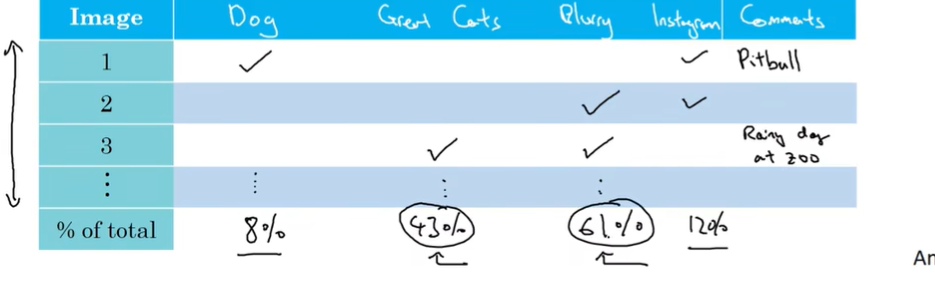 Image Dog Great Cats Blurry Instagram Comments
1 ✓ ✓ Pitball
2 ✓ ✓
3 ✓ ✓ Rainy day
at zoo
⋮ ⋮ ⋮ ⋮
% of total 8% 43% 61% 12%
An